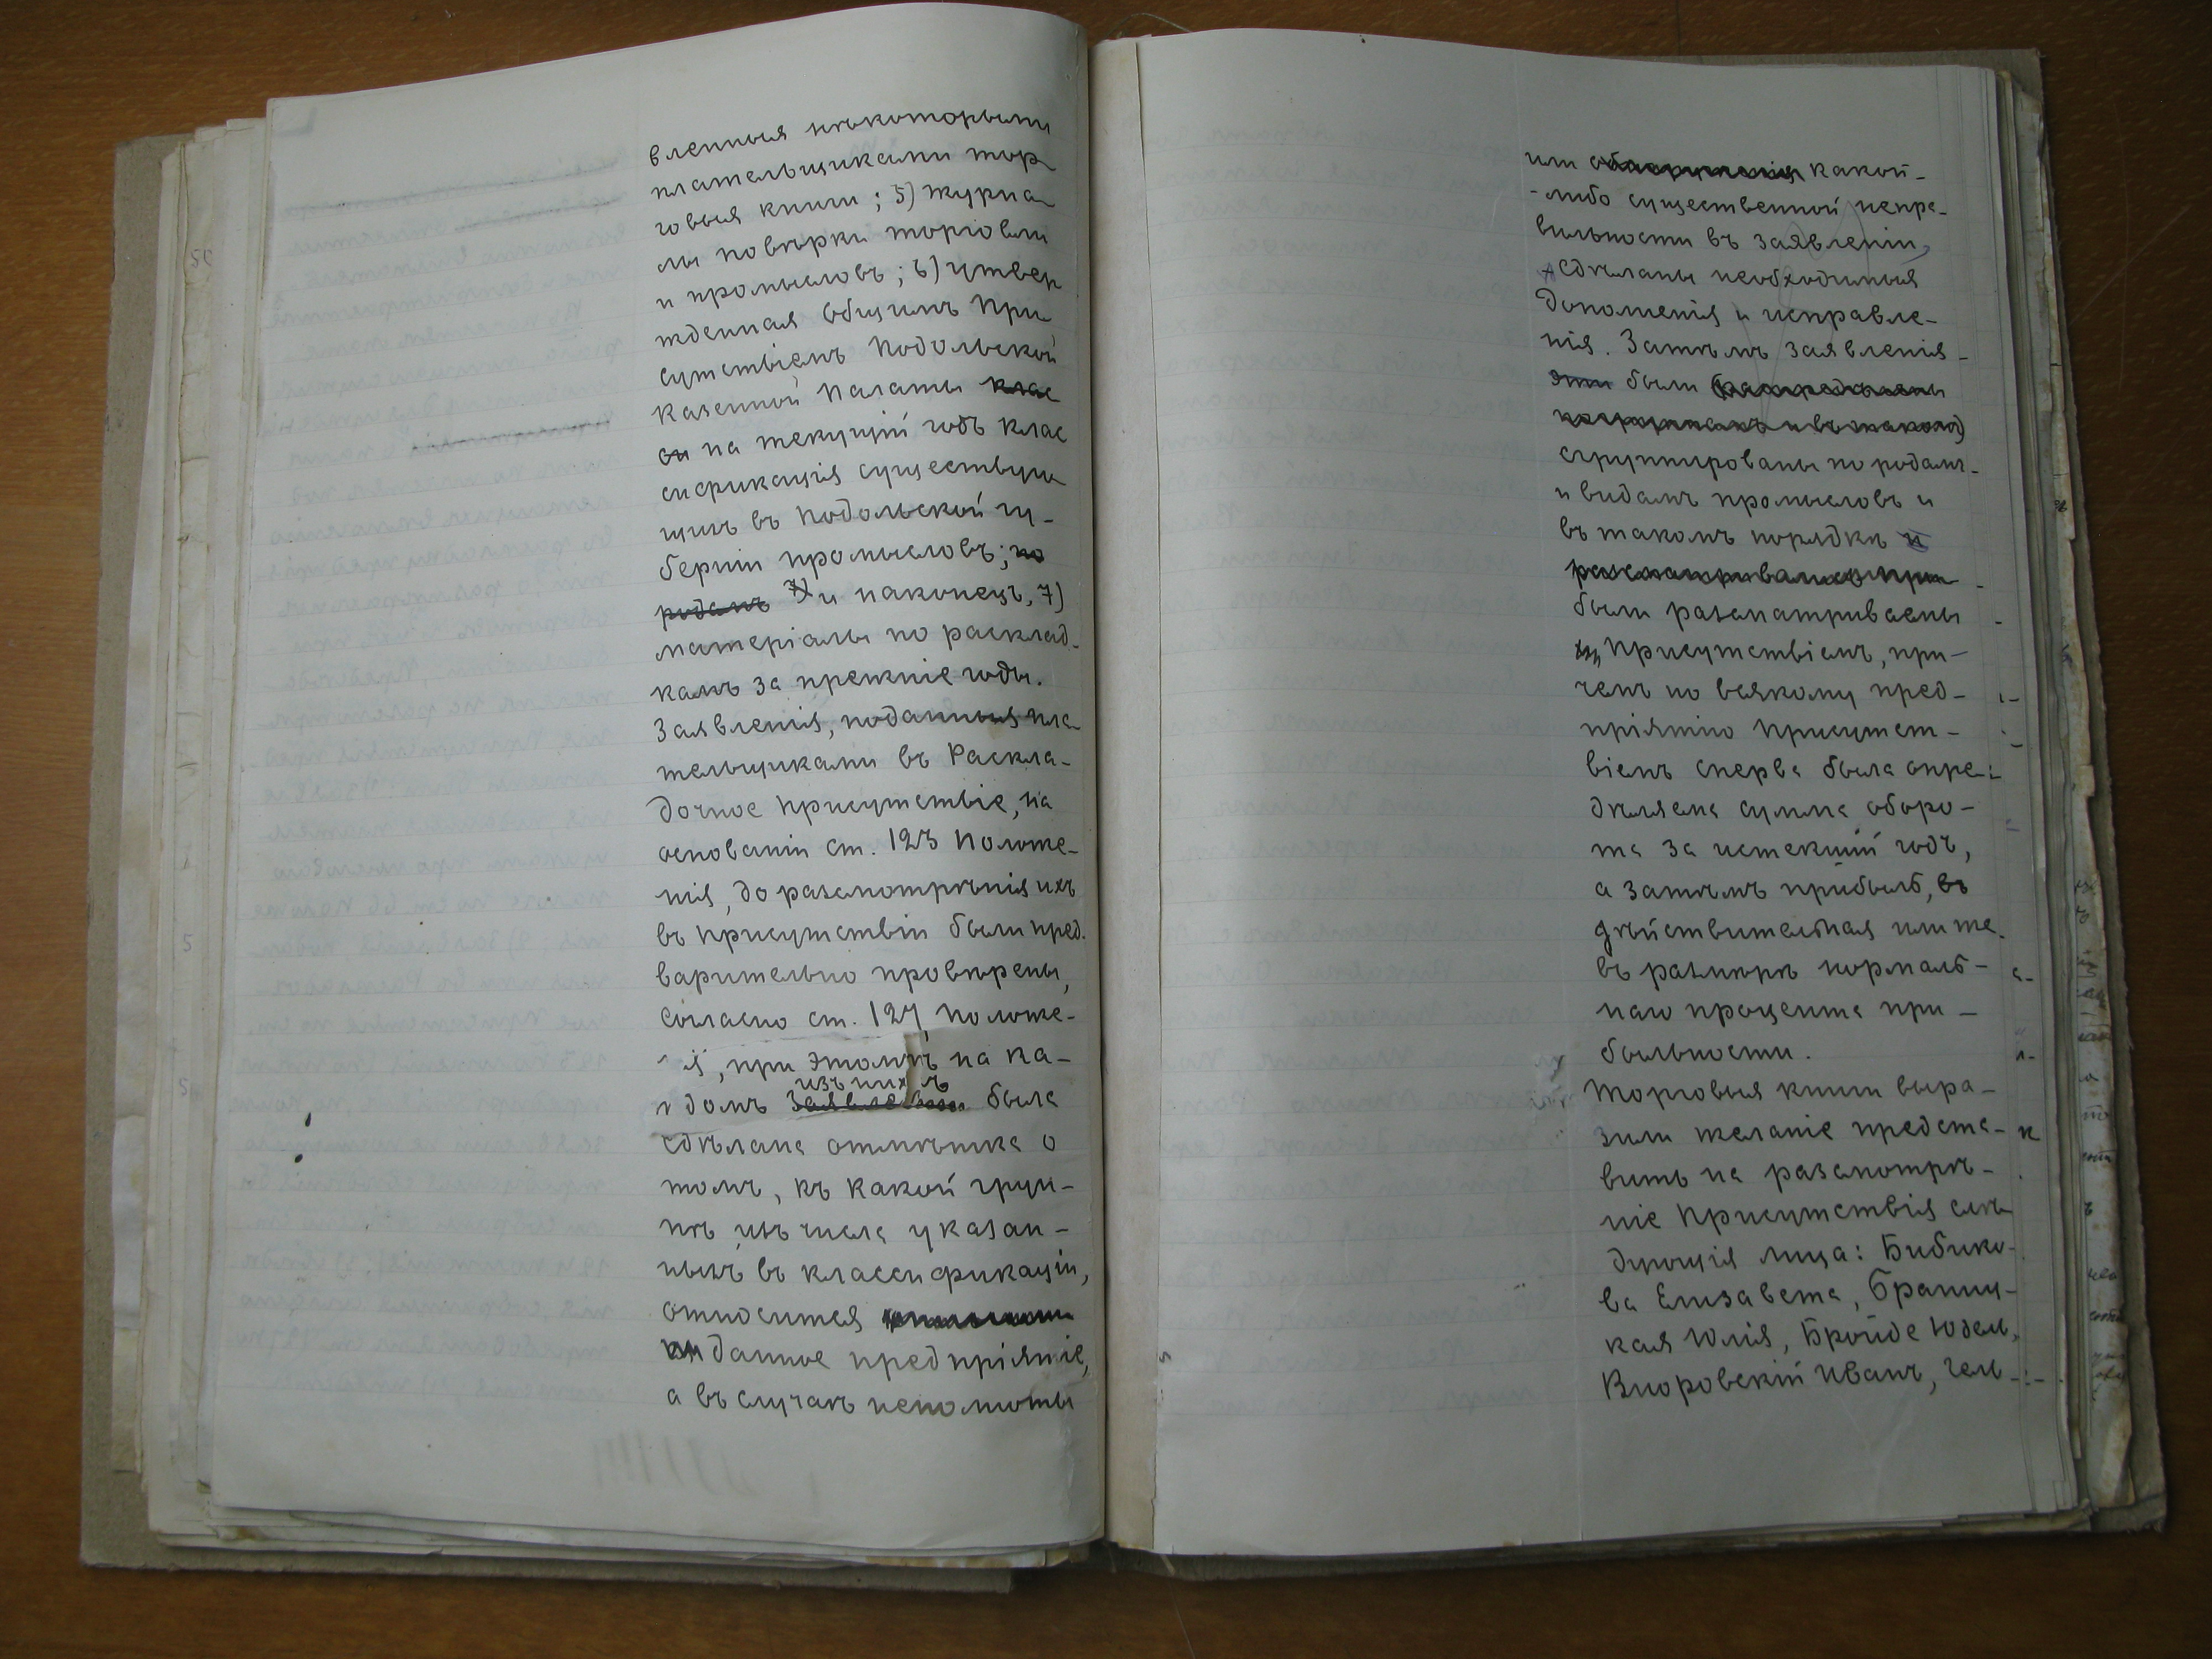 вленныя нѣкоторыми
плательщиками тор
говыя книги; 5) журна
лы повѣрки торговли
и промысловъ; 6) утвер
жденная общимъ При
сутствіемъ Подольской
Казенной Палаты клас
си на текущій годъ клас
сификація существую
щихъ въ Подольской гу-
берніи промысловъ; по
родамъ 7) и наконецъ, 7)
матеріалы по расклад-
камъ за прежніе годы.
Заявленія, поданныя пла-
тельщиками въ Раскла-
дочное Присутствіе, на
основаніи ст. 123 Положе-
нія, до разсмотрѣнія ихъ
въ Присутствіи были пред-
варительно провѣрены,
согласно ст. 127 Положе-
ія, при этомъ на ка-
домъ заявле изъ нихъ была
сдѣлана отмѣтка о
томъ, къ какой груп-
пѣ изъ числа указан-
ныхъ въ классификаціи,
относится
данное предпріятіе,
а въ случаѣ неполноты
или какой-
-либо существенной непра-
вильности въ заявленіи,
сдѣланы необходимыя
дополненія и исправле-
нія. Затѣмъ заявленія
эти были распредѣлены
сгруппированы по родамъ
и видамъ промысловъ и
въ такомъ порядкѣ и
разсматривались при
были разсматриваемы
Присутствіемъ, при-
чемъ по всякому пред-
пріятію Присутст-
віемъ сперва была опре-
дѣляема сумма оборо-
та за истекшій годъ,
а затѣмъ прибыль, въ
дѣйствительная или же
въ размѣрѣ нормаль-
наго процента при-
быльности.
Торговыя книги выра-
зили желаніе предста-
вить на разсмотрѣ-
ніе Присутствія слѣ-
дующія лица: Бибико-
ва Елизавета, Браниц-
кая Юлія, Бройде Юдель,
Вноровскій Иванъ, Гель-